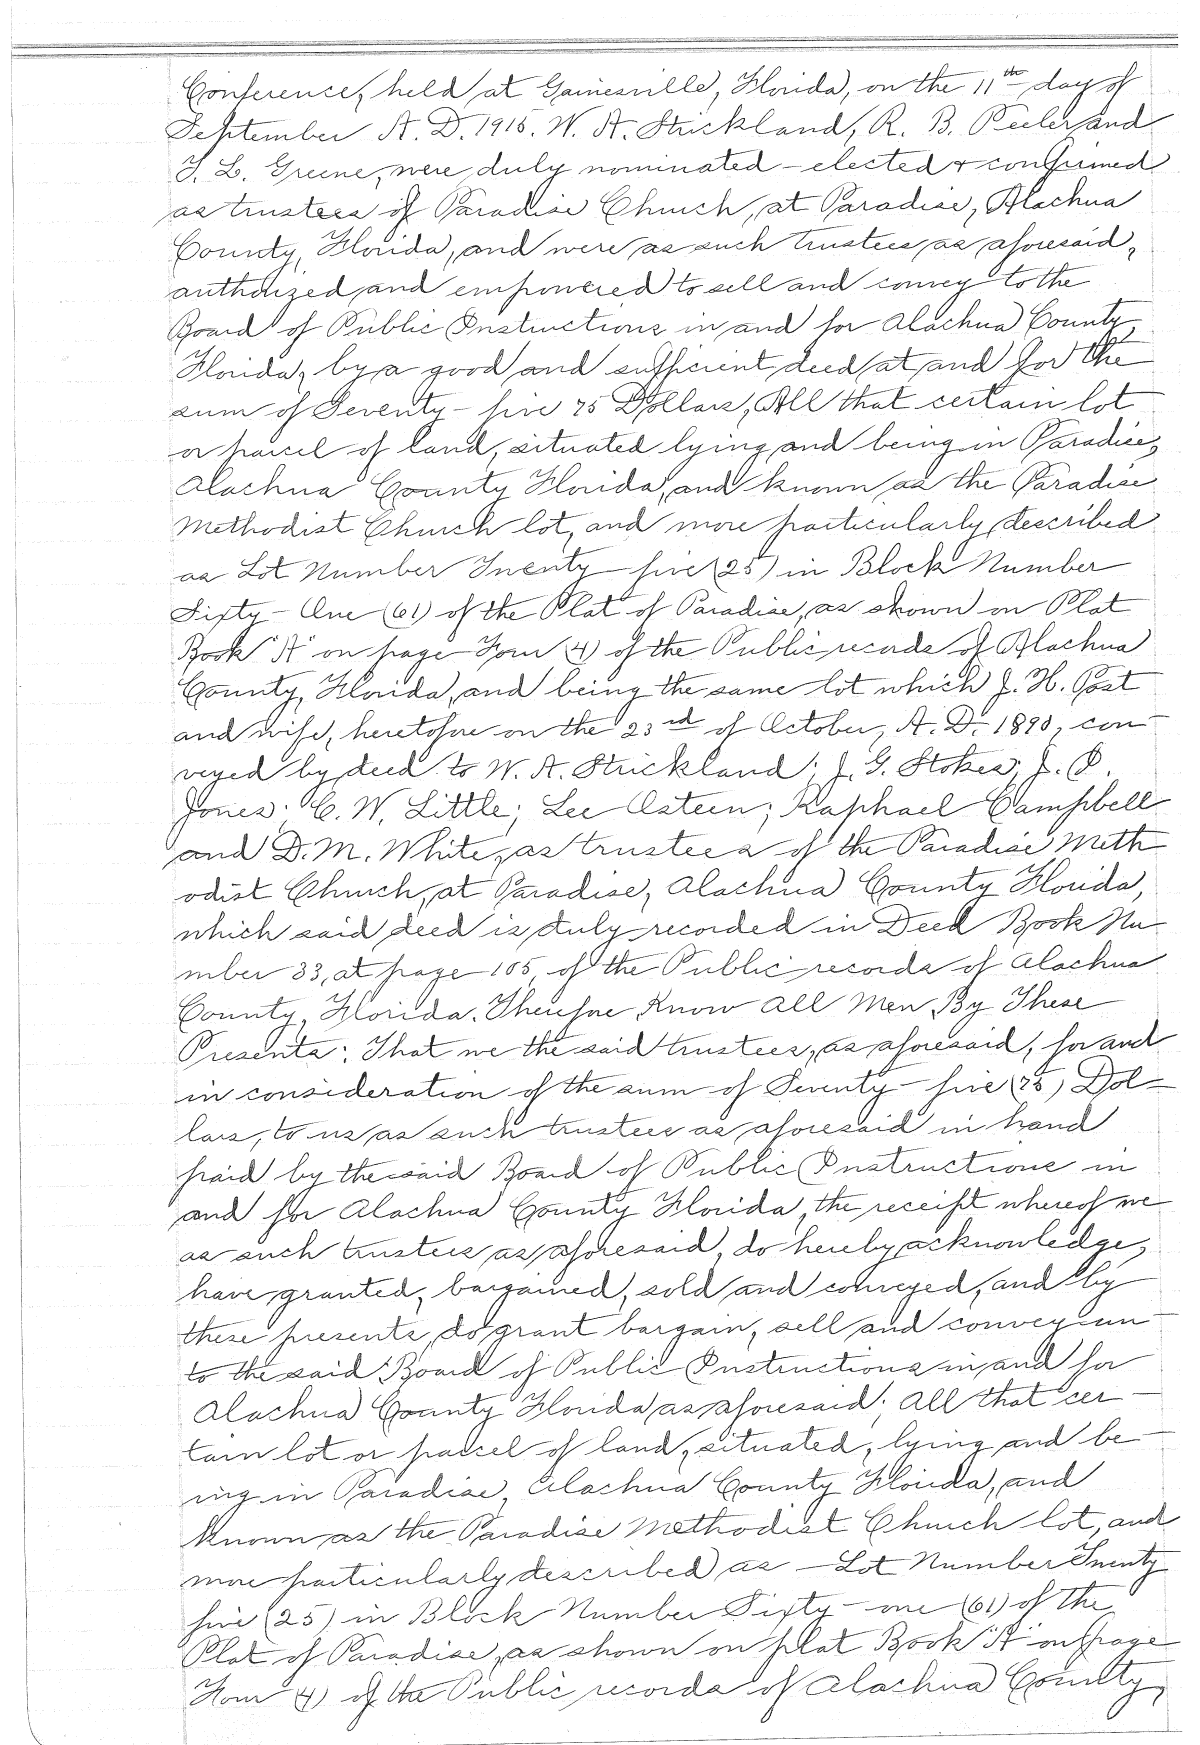 Conference, held at Gainesville, Florida, on the 11th day of
September A. D. 1915. W. A. Strickland, R. B. Peeler and
J. L. Greene, were duly nominated - elected & confirmed
as trustees of Paradise Church, at Paradise, Alachua
County, Florida, and were as such trustees as aforesaid,
authorized and empowered to sell and convey to the
Board of Public Instructions in and for Alachua County,
Florida, by a good and sufficient deed at and for the
sum of Seventy - five 75 Dollars, All that certain lot
or parcel of land, situated lying and being in Paradise,
Alachua County Florida, and known as the Paradise
Methodist Church lot, and more particularly described
as Lot Number Twenty - five (25) in Block Number
Sixty - One (61) of the Plat of Paradise, as shown on Plat
Book "A" on page Four (4) of the Public records of Alachua
County, Florida, and being the same lot which J. H. Post
and wife, heretofore on the 23rd of October, A. D. 1890, con-
veyed by deed to W. A. Strickland; J. G. Stokes; J. P.
Jones; C. W. Little; Lee Osteen; Raphael Campbell
and D. M. White, as trustees of the Paradise Meth
odist Church, at Paradise, Alachua County Florida,
which said deed is duly recorded in Deed Book Nu
mber 33, at page 105, of the Public records of Alachua
County, Florida. Therefore Know All Men By These
Presents: That we the said trustees, as aforesaid, for and
in consideration of the sum of Seventy - five (75) Dol-
lars, to us as such trustees as aforesaid in hand
paid by the said Board of Public Instructions in
and for Alachua County Florida, the receipt whereof we
as such trustees as aforesaid, do hereby acknowledge,
have granted, bargained, sold and conveyed, and by
these presents, do grant bargain, sell and convey un-
to the said Board of Public Instructions in and for
Alachua County Florida as aforesaid; All that cer-
tain lot or parcel of land, situated, lying and be-
ing in Paradise, Alachua County Florida, and
known as the Paradise Methodist Church lot, and
more particularly described as - Lot Number Twenty
five (25) in Block Number Sixty - one (61) of the
Plat of Paradise, as shown on plat Book "A" on page
Four (4) of the Public records of Alachua County,